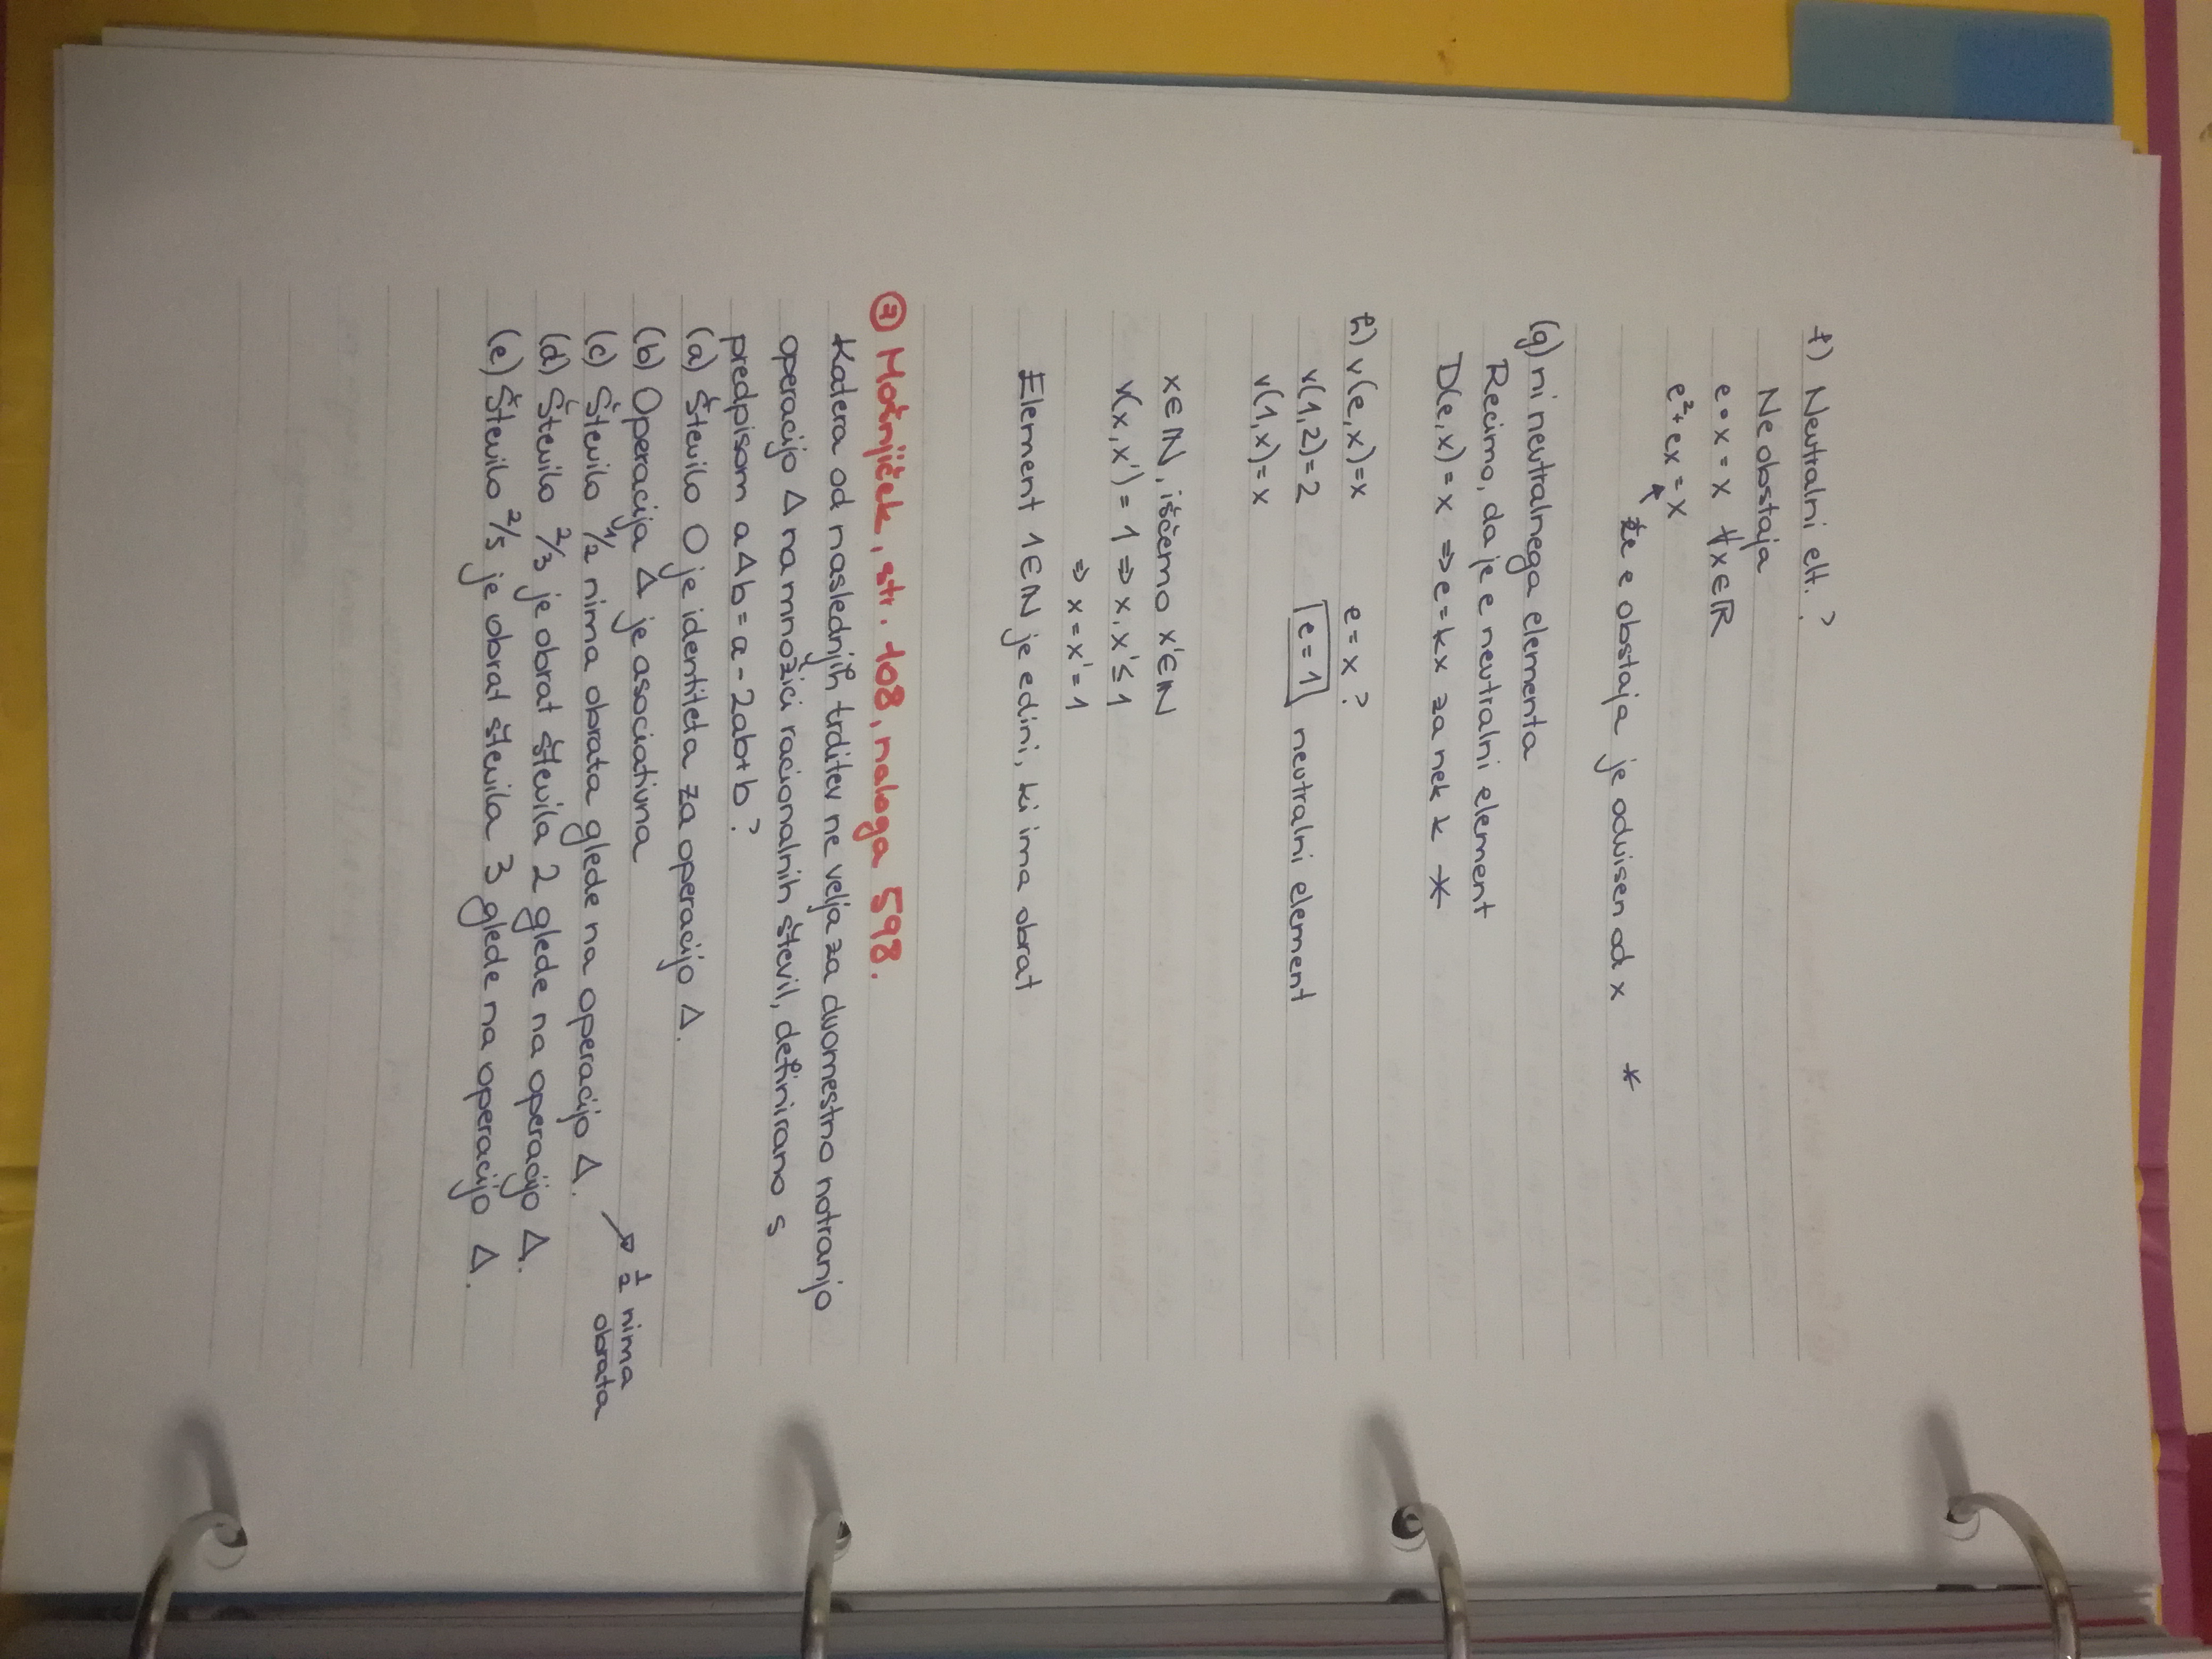 f) Nevtralni elt. ?
Ne obstaja
e∘x = x ∀x∈ℝ
e² + ex = x
↖
če e obstaja je odvisen od x *
(g) ni nevtralnega elementa
Recimo, da je e nevtralni element
D(e,x) = x ⇒ e = kx za nek k *
h) v(e,x)=x e = x ?
v(1,2)=2 e = 1 nevtralni element
v(1,x)= x
x∈ℕ, iščemo x'∈ℕ
v(x,x') = 1 ⇒ x, x' ≤ 1
⇒ x = x' = 1
Element 1∈ℕ je edini, ki ima obrat
⑦ Mošnjiček, str. 108, naloga 598.
Katera od naslednjih trditev ne velja za dvomestno notranjo
operacijo Δ na množici racionalnih števil, definirano s
predpisom a Δ b = a - 2ab + b ?
(a) Število 0 je identiteta za operacijo Δ.
(b) Operacija Δ je asociativna
(c) Število 1/2 nima obrata glede na operacijo Δ. ↗ 1/2 nima
obrata
(d) Število 2/3 je obrat števila 2 glede na operacijo Δ.
(e) Število 2/5 je obrat števila 3 glede na operacijo Δ.